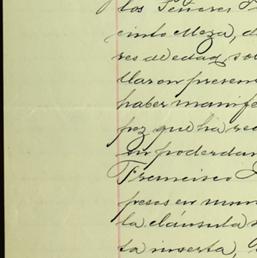 los Señores
cinto Meza, d
res de edad, so
llaron presen
haber manifes
pez que ha re
su poderdan
Francisco
pesos en mon
la cláusula
ta inserta,